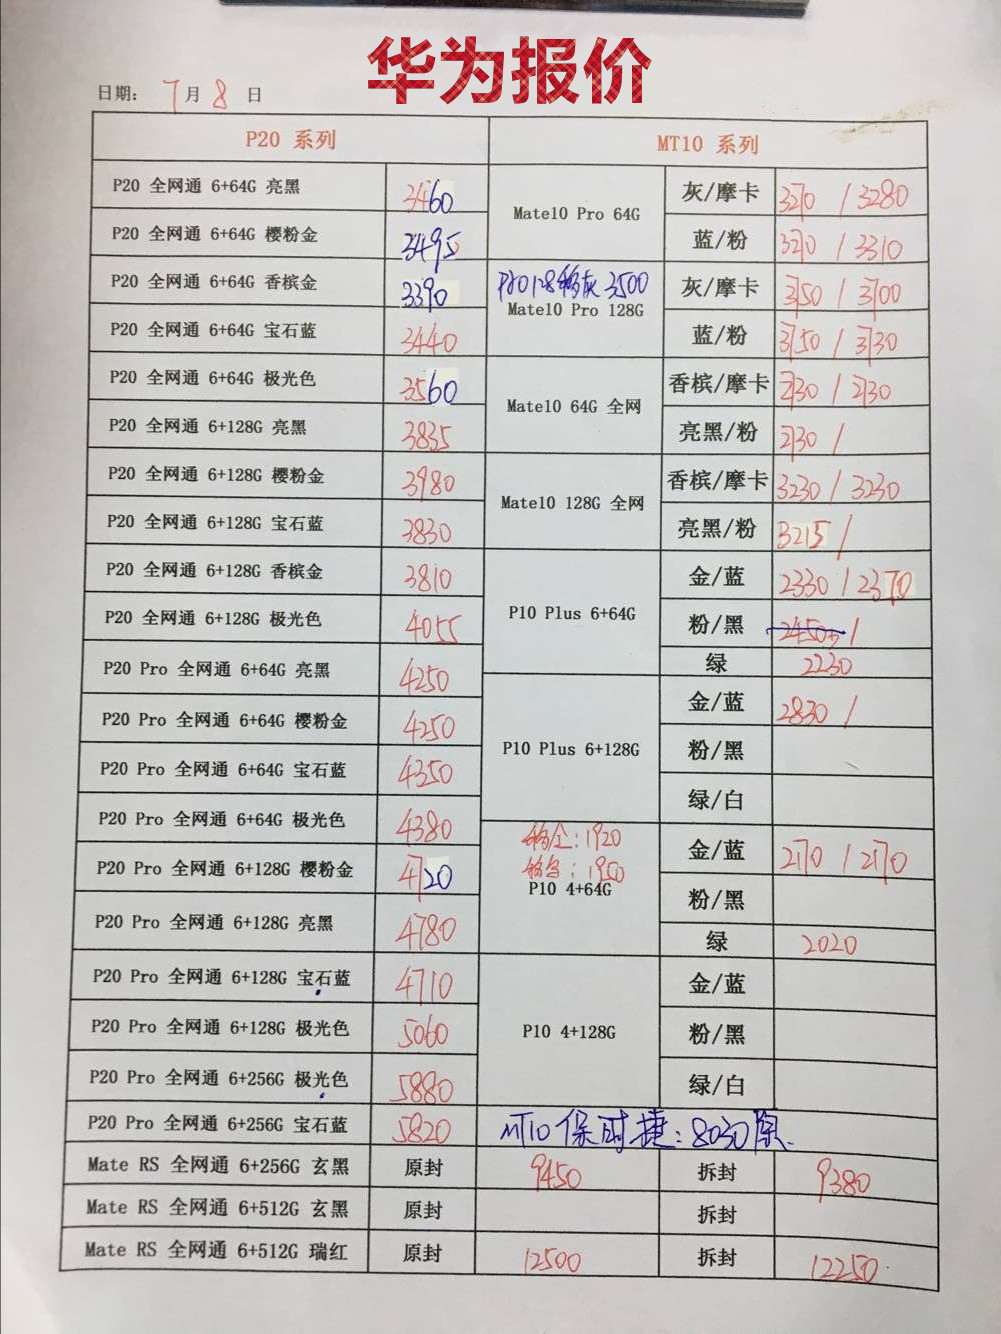 华为报价
日期: 7 月 8 日
P20 系列 MT10 系列
P20 全网通 6+64G 亮黑 3460
P20 全网通 6+64G 樱粉金 3495
P20 全网通 6+64G 香槟金 3390
P20 全网通 6+64G 宝石蓝 3440
P20 全网通 6+64G 极光色 3560
P20 全网通 6+128G 亮黑 3835
P20 全网通 6+128G 樱粉金 3980
P20 全网通 6+128G 宝石蓝 3830
P20 全网通 6+128G 香槟金 3810
P20 全网通 6+128G 极光色 4055
P20 Pro 全网通 6+64G 亮黑 4250
P20 Pro 全网通 6+64G 樱粉金 4250
P20 Pro 全网通 6+64G 宝石蓝 4350
P20 Pro 全网通 6+64G 极光色 4380
P20 Pro 全网通 6+128G 樱粉金 4720
P20 Pro 全网通 6+128G 亮黑 4780
P20 Pro 全网通 6+128G 宝石蓝 4710
P20 Pro 全网通 6+128G 极光色 5060
P20 Pro 全网通 6+256G 极光色 5880
P20 Pro 全网通 6+256G 宝石蓝 5820
Mate10 Pro 64G
灰/摩卡 3270 / 3280
蓝/粉 3270 / 3310
灰 3500
Mate10 Pro 128G
灰/摩卡 3750 / 3700
蓝/粉 3750 / 3730
Mate10 64G 全网
香槟/摩卡 2730 / 2730
亮黑/粉 2730 /
Mate10 128G 全网
香槟/摩卡 3230 / 3230
亮黑/粉 3215 /
P10 Plus 6+64G
金/蓝 2330 / 2370
粉/黑 /
绿 2230
P10 Plus 6+128G
金/蓝 2830 /
粉/黑
绿/白
: 1920
: 1950
P10 4+64G
金/蓝 2170 / 2170
粉/黑
绿 2020
P10 4+128G
金/蓝
粉/黑
绿/白
MT10 保时捷: 8030
Mate RS 全网通 6+256G 玄黑 原封 9450 拆封 9380
Mate RS 全网通 6+512G 玄黑 原封 拆封
Mate RS 全网通 6+512G 瑞红 原封 12500 拆封 12250